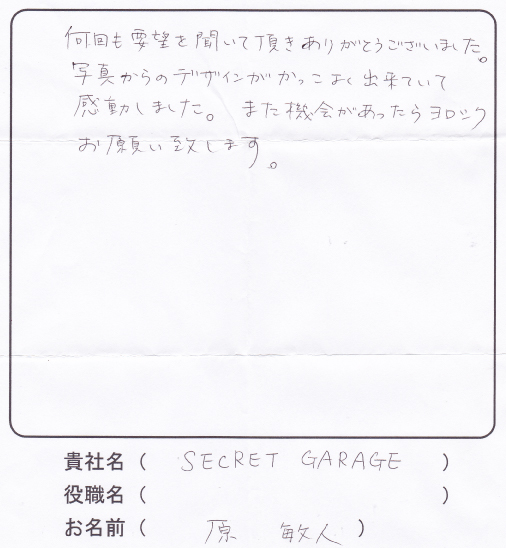 何回も要望を聞いて頂きありがとうございました。
写真からのデザインがかっこよく出来ていて
感動しました。 また機会があったらヨロシク
お願い致します。
貴社名( SECRET GARAGE )
役職名( )
お名前( 原 敏人 )